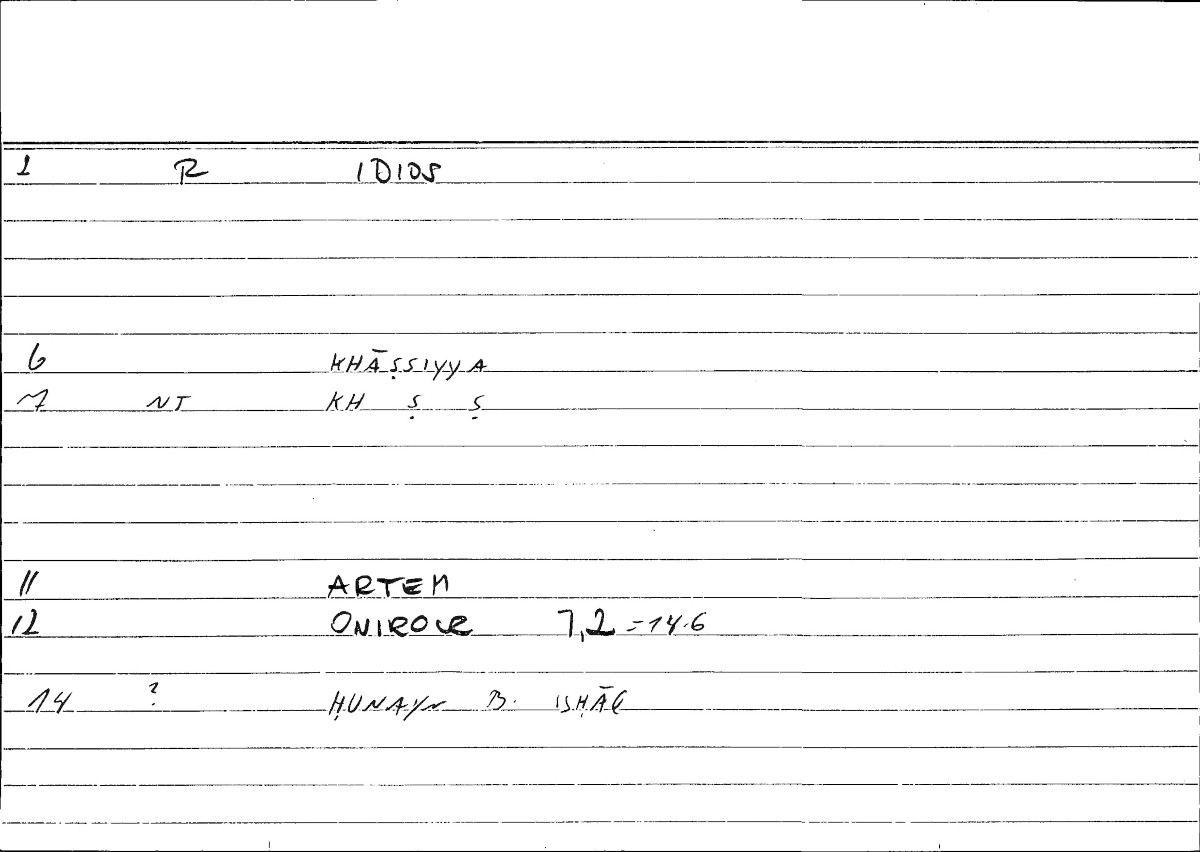 1 R IDIOS
6 KHĀṢṢIYYA
7 NT KH Ṣ Ṣ
11 ARTEM
12 ONIROCR 7,2 =14.6
14 ? ḤUNAYN B. ISḤĀQ